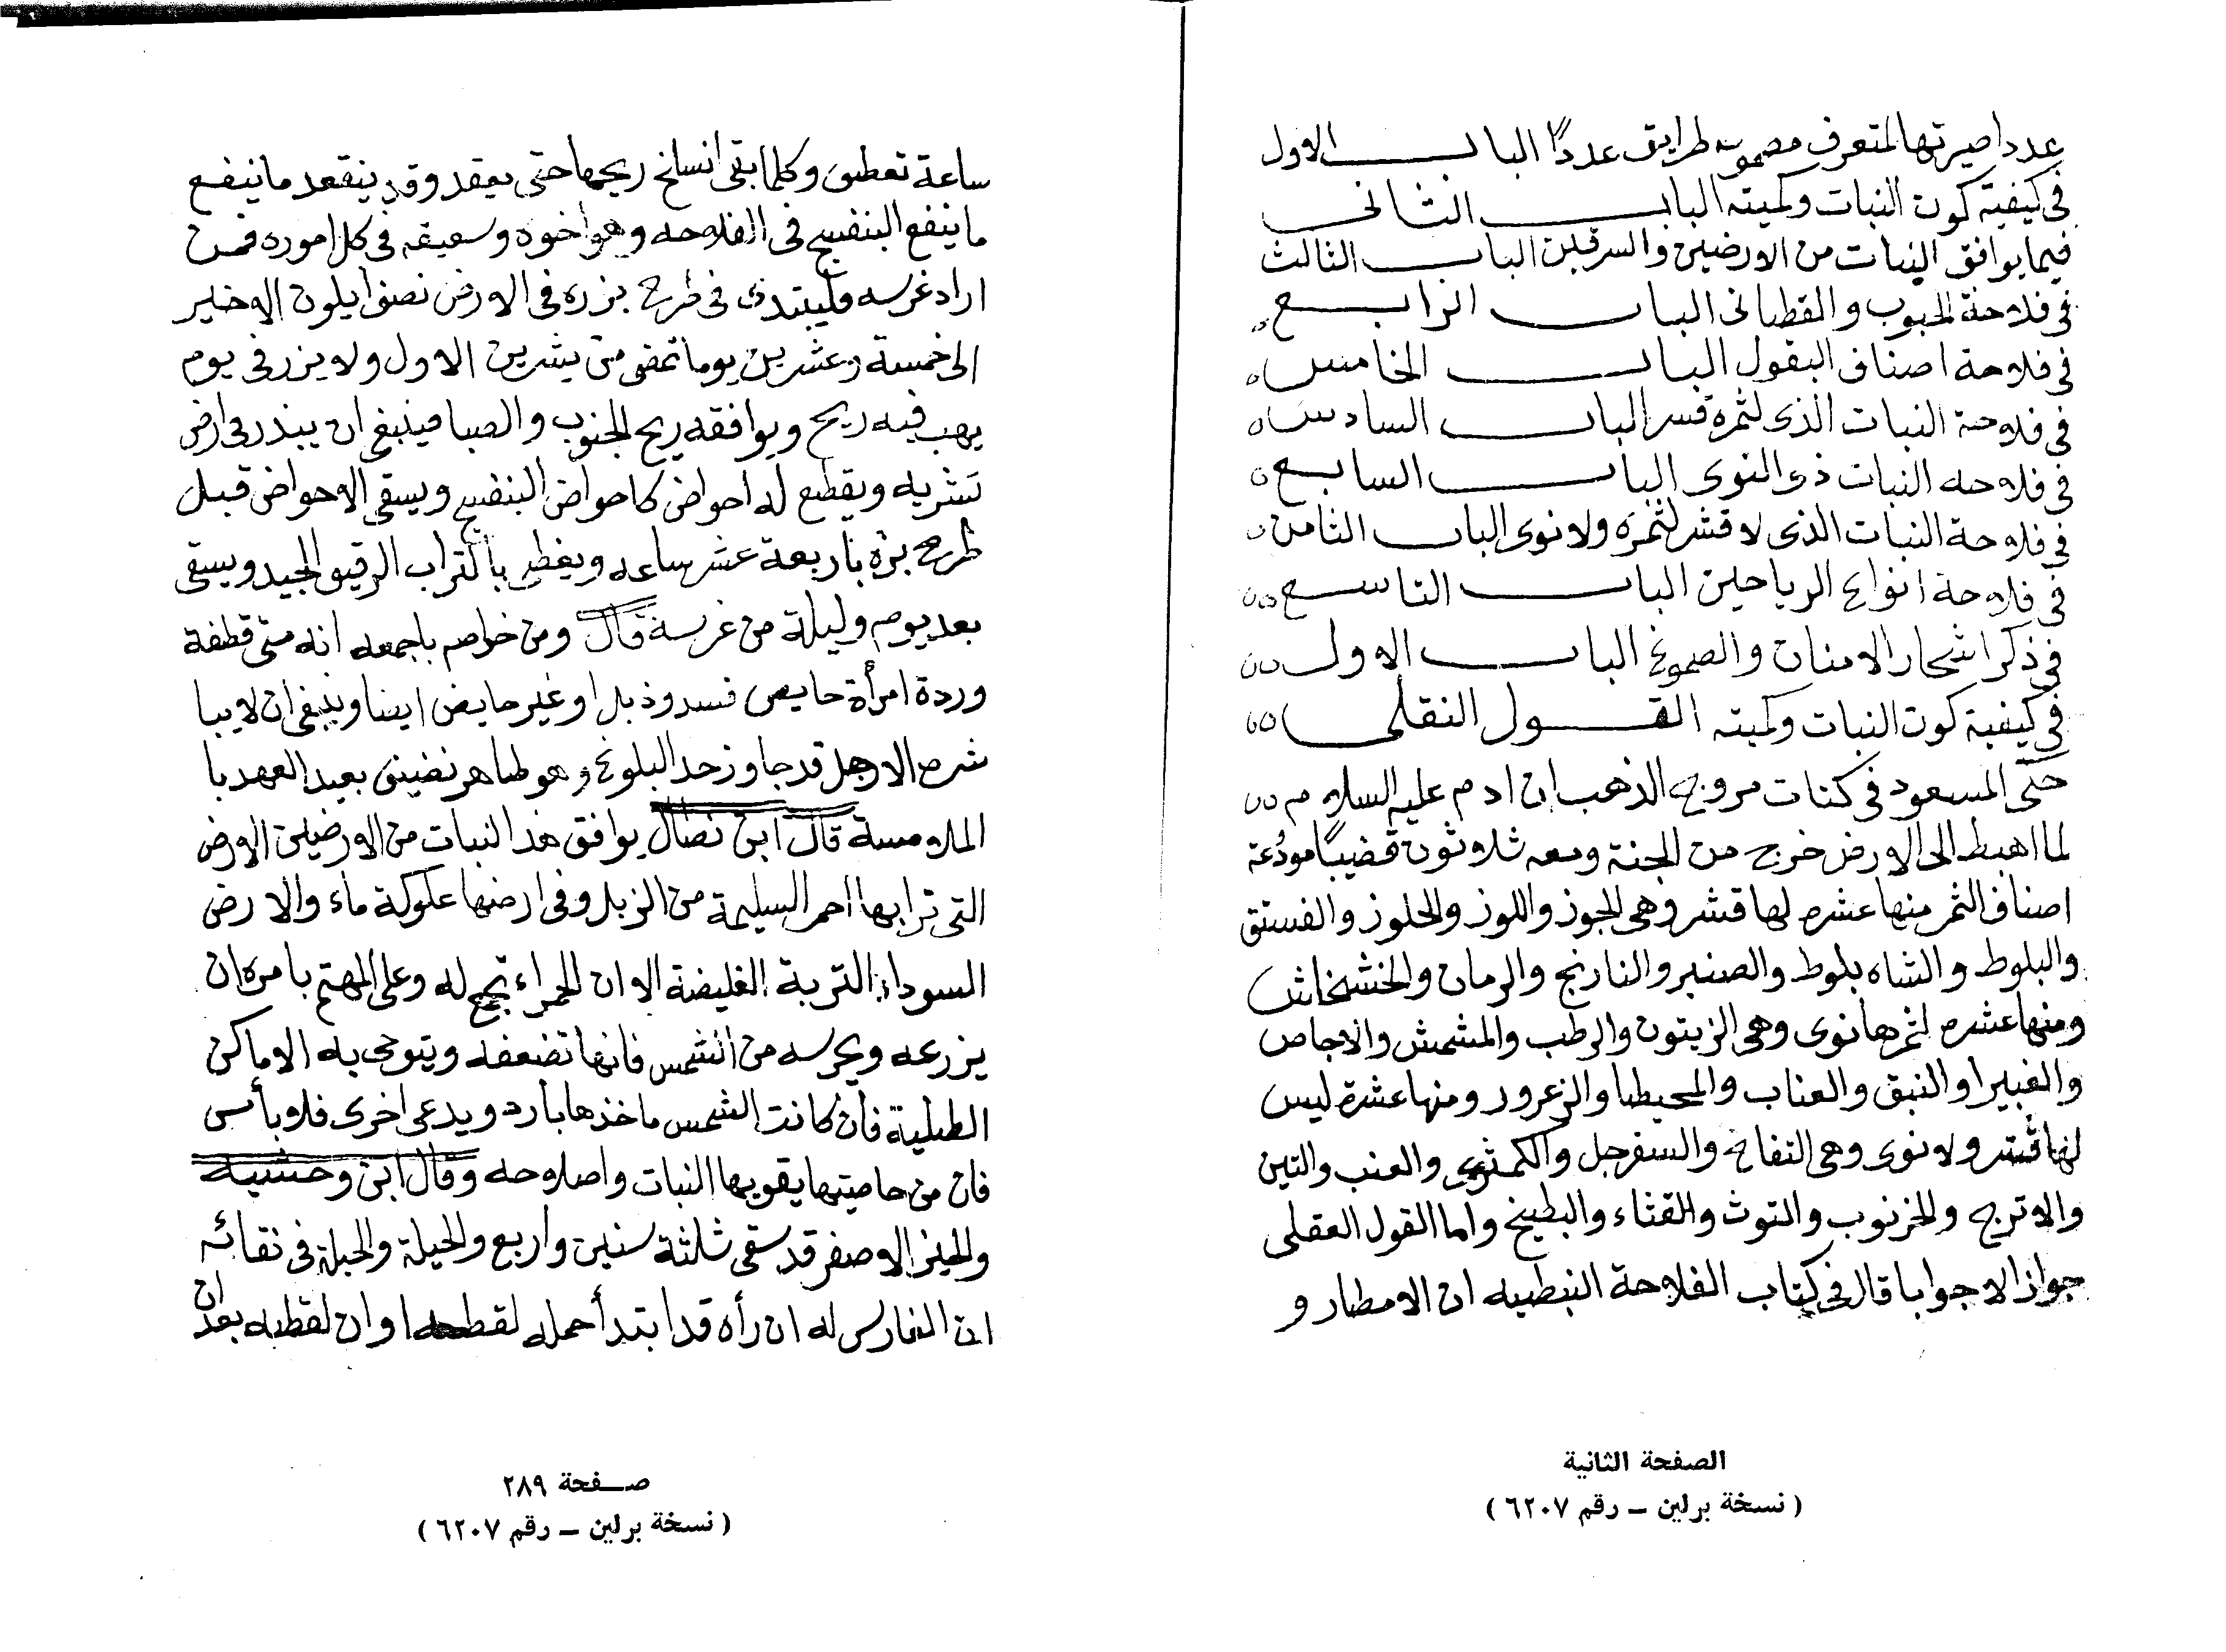 عددا صيرتها لمتعرف مضمونه طرايق عددا الباب الاول
في كيفية كون النبات وكميته الباب الثاني
فيما يوافق النبات من الارضين والسرقين الباب الثالث
في فلاحة الحبوب والقطاني الباب الرابع
في فلاحة اصناف البقول الباب الخامس
في فلاحة النبات الذي لثمره قسر الباب السادس
في فلاحه النبات ذي النوى الباب السابع
في فلاحة النبات الذي لا قشر لثمره ولا نوى الباب الثامن
في فلاحة انواع الرياحين الباب التاسع
في ذكر اشجار الامنان والصموغ الباب الاول
في كيفية كون النبات وكميته القول النقلي
حكى المسعود في كتاب مروج الذهب ان ادم عليه السلام
لما اهبط الى الارض خرج من الجنة ومعه ثلاثون قضيبًا مودُعة
اصناف الثمر منها عشره لها قشر وهي الجوز واللوز والجلوز والفستق
والبلوط والشاه بلوط والصنبر والنارنج والرمان والخشخاش
ومنها عشره لثمرها نوى وهي الزيتون والرطب والمشمش والاجاص
والغبيرا والنبق والعناب والمخيطا والزعرور ومنها عشرة ليس
لها قشر ولا نوى وهي التفاح والسفرجل والكمثرى والعنب والتين
والاترج والخرنوب والتوث والقثاء والبطيخ واما القول العقلي
جواز الاجوابا قال في كتاب الفلاحة النبطيه ان الامطار و
الصفحة الثانية
( نسخة برلين – رقم ٦٢٠٧ )
ساعة تعطين وكلما بقى انسلخ ريحها حتى يعقد وقد ينقعد ما ينفع
ما ينفع البنفسج في الفلاحه وهو اخوه وسعيقه في كل اموره فمن
اراد غرسه فليبتدى في طرح بزره في الارض نصف ايلون الاخير
الى خمسة وعشرين يوما تمضى من تشرين الاول ولا يزر في يوم
يهب فيه ريح ويوافقه ريح الجنوب والصبا فينبغي ان يبذر في ارض
تشريه ويقطع له احواض كاحواض البنفسج ويسقى الاحواض قبل
طرح بزه باربعة عشر ساعه ويغطى بالتراب الرقيق الجيد ويسقى
بعد يوم وليلة من غرسة قال ومن خواصه باجمعه انه متى قطفة
وردة امرأة حايض فسد وذبل او غير حايض ايضا وينبغي ان لا يبا
شره الا رجل قد جاوز حد البلوغ وهو طاهر نضيف بعيد العهد با
الملامسة قال ابن نصال يوافق هذا النبات من الارضين الارض
التي ترابها احمر السليمة من الزبل وفي ارضها علوكة ماء والارض
السوداء التربة الغليضة الا ان الحمراء تجمع له وعلى المهتم بامره ان
يزرعه ويحرسه من الشمس فانها تضعفه ويتوخى به الاماكن
الظلية فان كانت الشمس ماخذها بأرد ويدعى اخرى فلا بأس
فان من خاصيتها يقويها النبات واصلاحه وقال ابن وحشيه
والخيز الاصفر قد سقى ثلثة سنين واربع والحيلة والحيلة في نقائه
ان الغارس له ان رأه قد ابتدأ حمله لقطعه اوان لقطبه بعد ان
صـفحة ٢٨٩
( نسخة برلين – رقم ٦٢٠٧ )